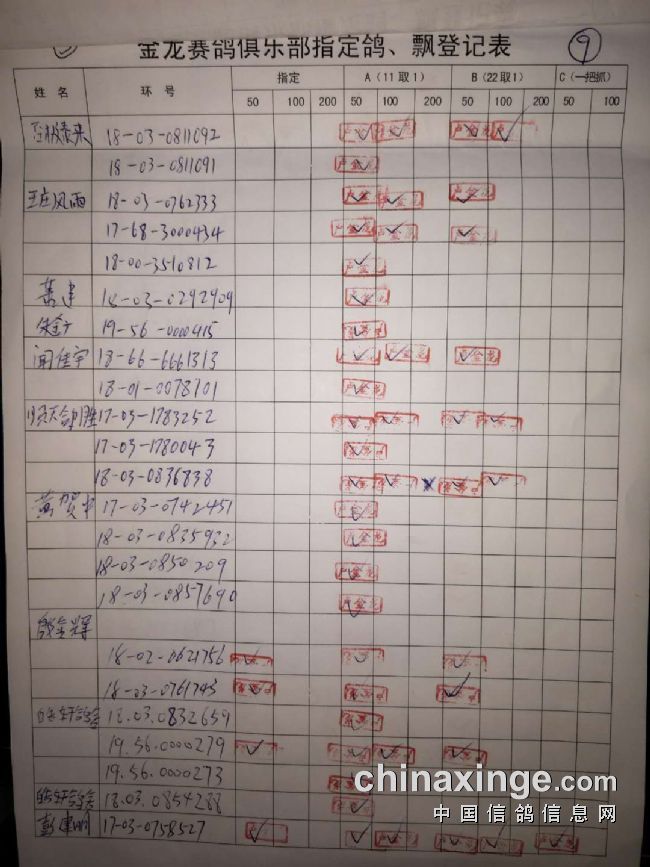 金龙赛鸽俱乐部指定鸽、飘登记表
9
姓名 环号 指定 A(11取1) B(22取1) C(一把抓)
50 100 200 50 100 200 50 100 200 50 100
18-03-0811092
18-03-0811091
王庄风雨 18-03-0762333
17-68-3000434
18-00-3510812
18-03-0292909
19-56-0000415
闻佳宇 18-66-6661313
18-01-0078701
17-03-1783252
17-03-1780043
18-03-0836838
黄贺 17-03-0742451
18-03-0835932
18-03-0850209
18-03-0857690
金辉
18-02-0621756
18-03-0761743
18.03.0832659
19.56.0000279
19.56.0000273
18.03.0854288
彭建明 17-03-0758527
chinaxinge.com
中国信鸽信息网